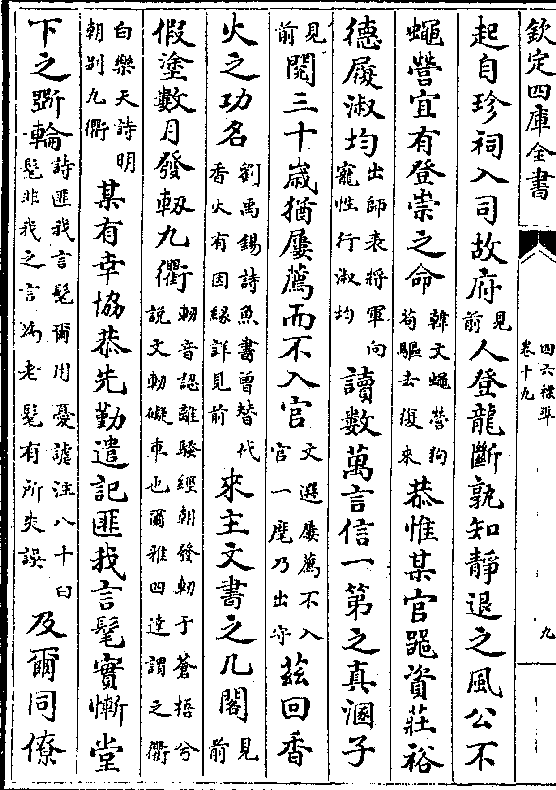 欽定四庫全書
四六標準
卷十九
九
起自珍祠入司故府見前人登龍斷孰知靜退之風公不
蠅營宜有登崇之命韓文蠅營狗苟驅去復來恭惟某官器資莊裕
德履淑均出師表將軍向寵性行淑均讀數萬言信一第之真溷子
見前閱三十歲猶屢薦而不入官文選屢薦不入官一麾乃出守茲回香
火之功名劉禹錫詩魚書曾替代香火有因緣詳見前來主文書之几閣見前
假塗數月發軔九衢軔音認離騷經朝發軔于蒼梧兮說文軔礙車也爾雅四達謂之衢
白樂天詩明朝别九衢某有幸協恭先勤遣記匪我言髦實慚堂
下之斲輪詩匪我言髦爾用憂謔注八十曰髦非我之言為老髦有所失誤及爾同僚